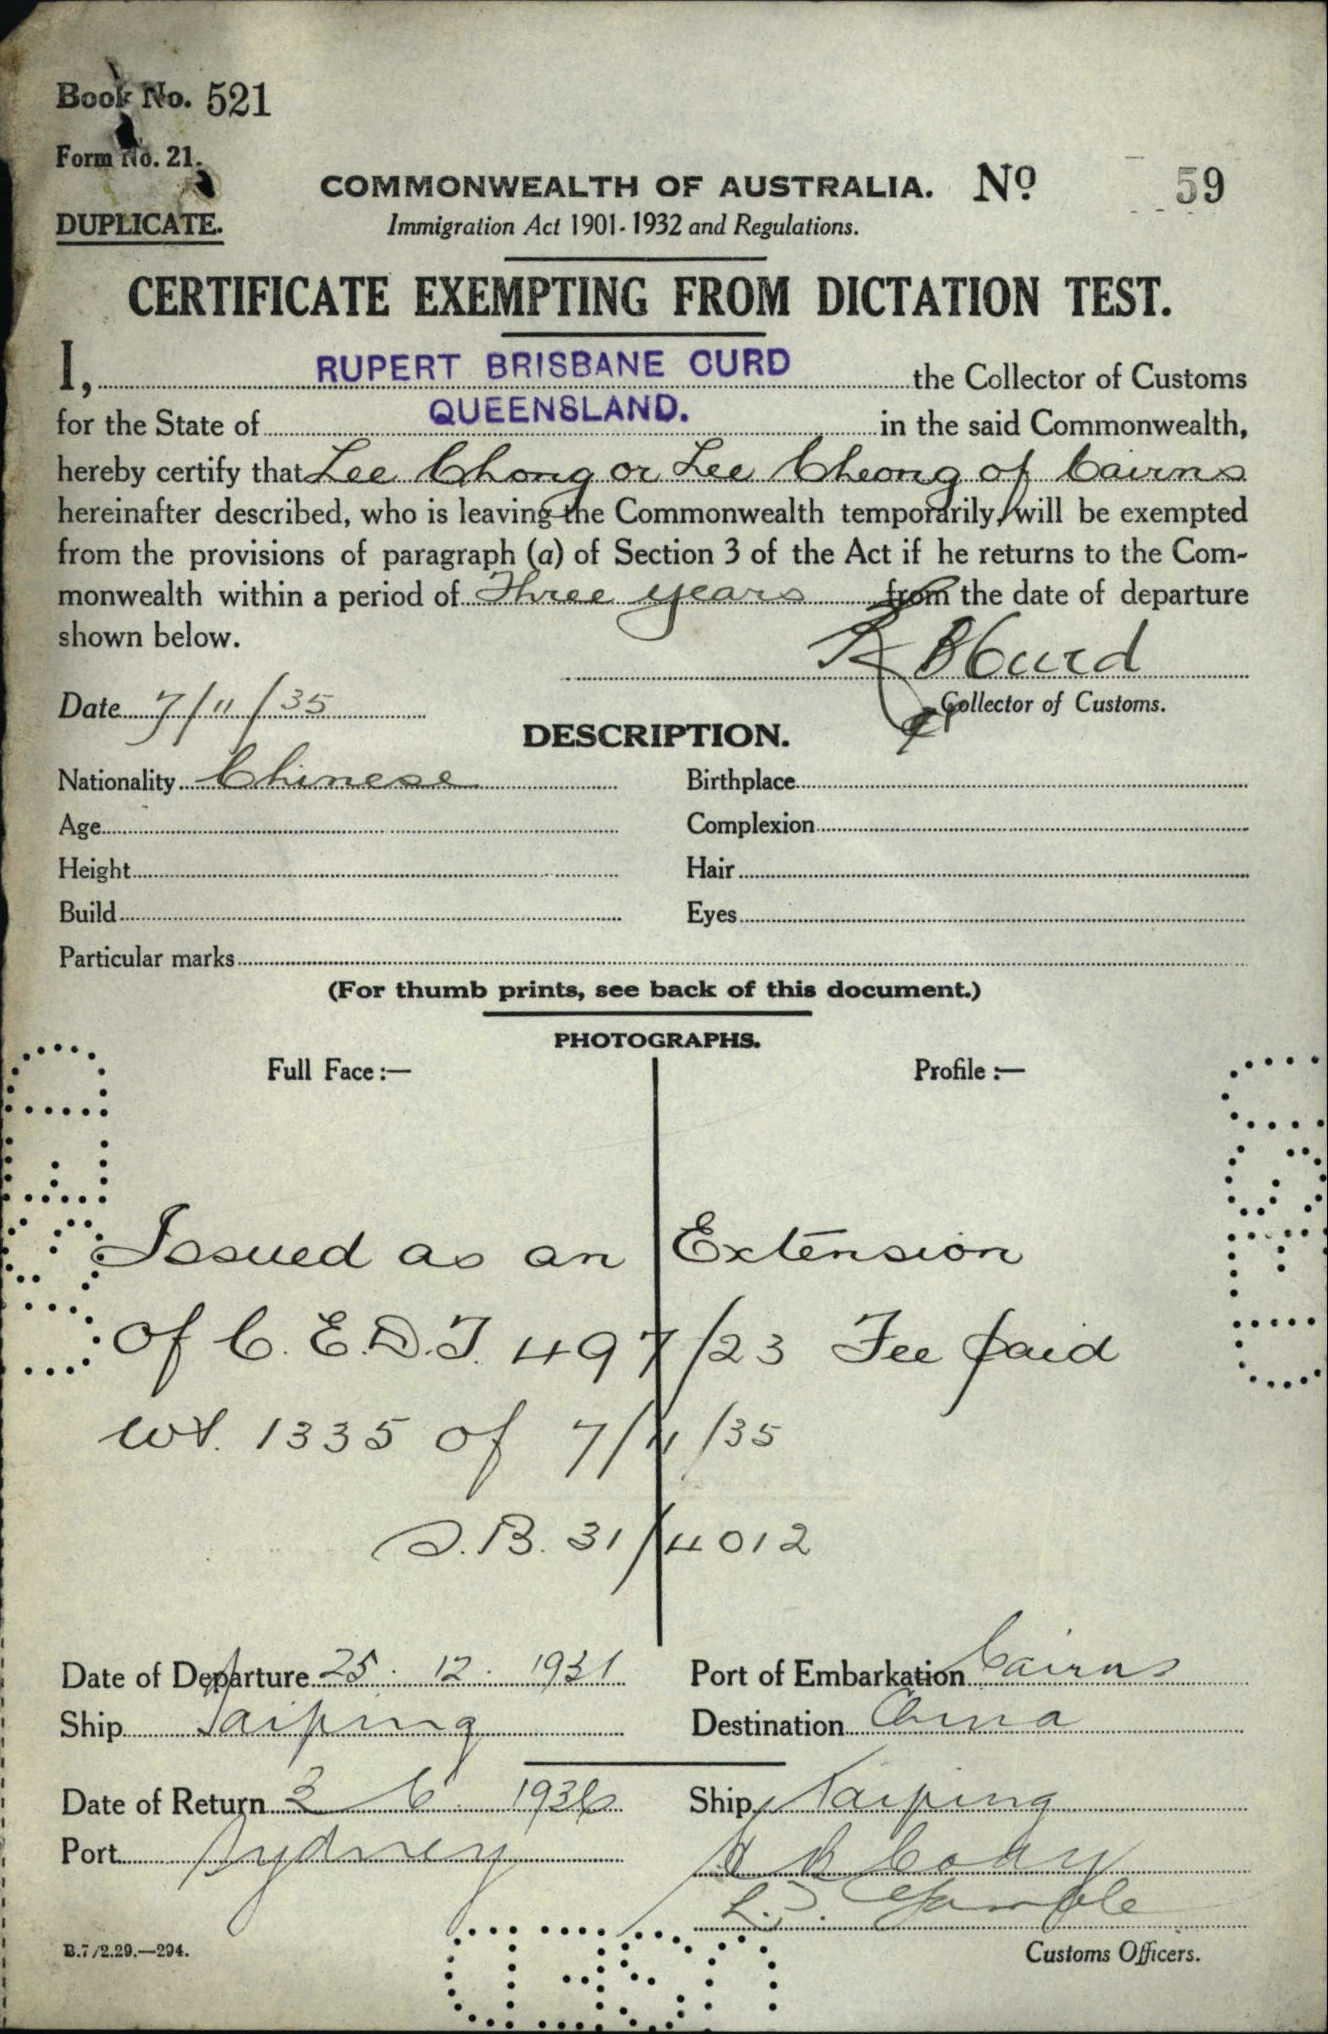 Book No. 521
Form No. 21.
DUPLICATE.
COMMONWEALTH OF AUSTRALIA. No 59
Immigration Act 1901-1932 and Regulations.
CERTIFICATE EXEMPTING FROM DICTATION TEST.
I, RUPERT BRISBANE CURD the Collector of Customs
for the State of QUEENSLAND. in the said Commonwealth,
hereby certify that Lee Chong or Lee Cheong of Cairns
hereinafter described, who is leaving the Commonwealth temporarily, will be exempted
from the provisions of paragraph (a) of Section 3 of the Act if he returns to the Com-
monwealth within a period of Three years from the date of departure
shown below.
R B Curd
Date 7/11/35 Collector of Customs.
DESCRIPTION.
Nationality Chinese Birthplace
Age Complexion
Height Hair
Build Eyes
Particular marks
(For thumb prints, see back of this document.)
PHOTOGRAPHS.
Full Face:— Profile:—
Issued as an Extension
of C.E.D.T. 497/23 Fee paid
1335 of 7/11/35
31/4012
Date of Departure 25. 12. 1931 Port of Embarkation Cairns
Ship Taiping Destination China
Date of Return 3 6 1936 Ship Taiping
Port Sydney
Customs Officers.
B.7/2.29.—294.
USED
USED
USED